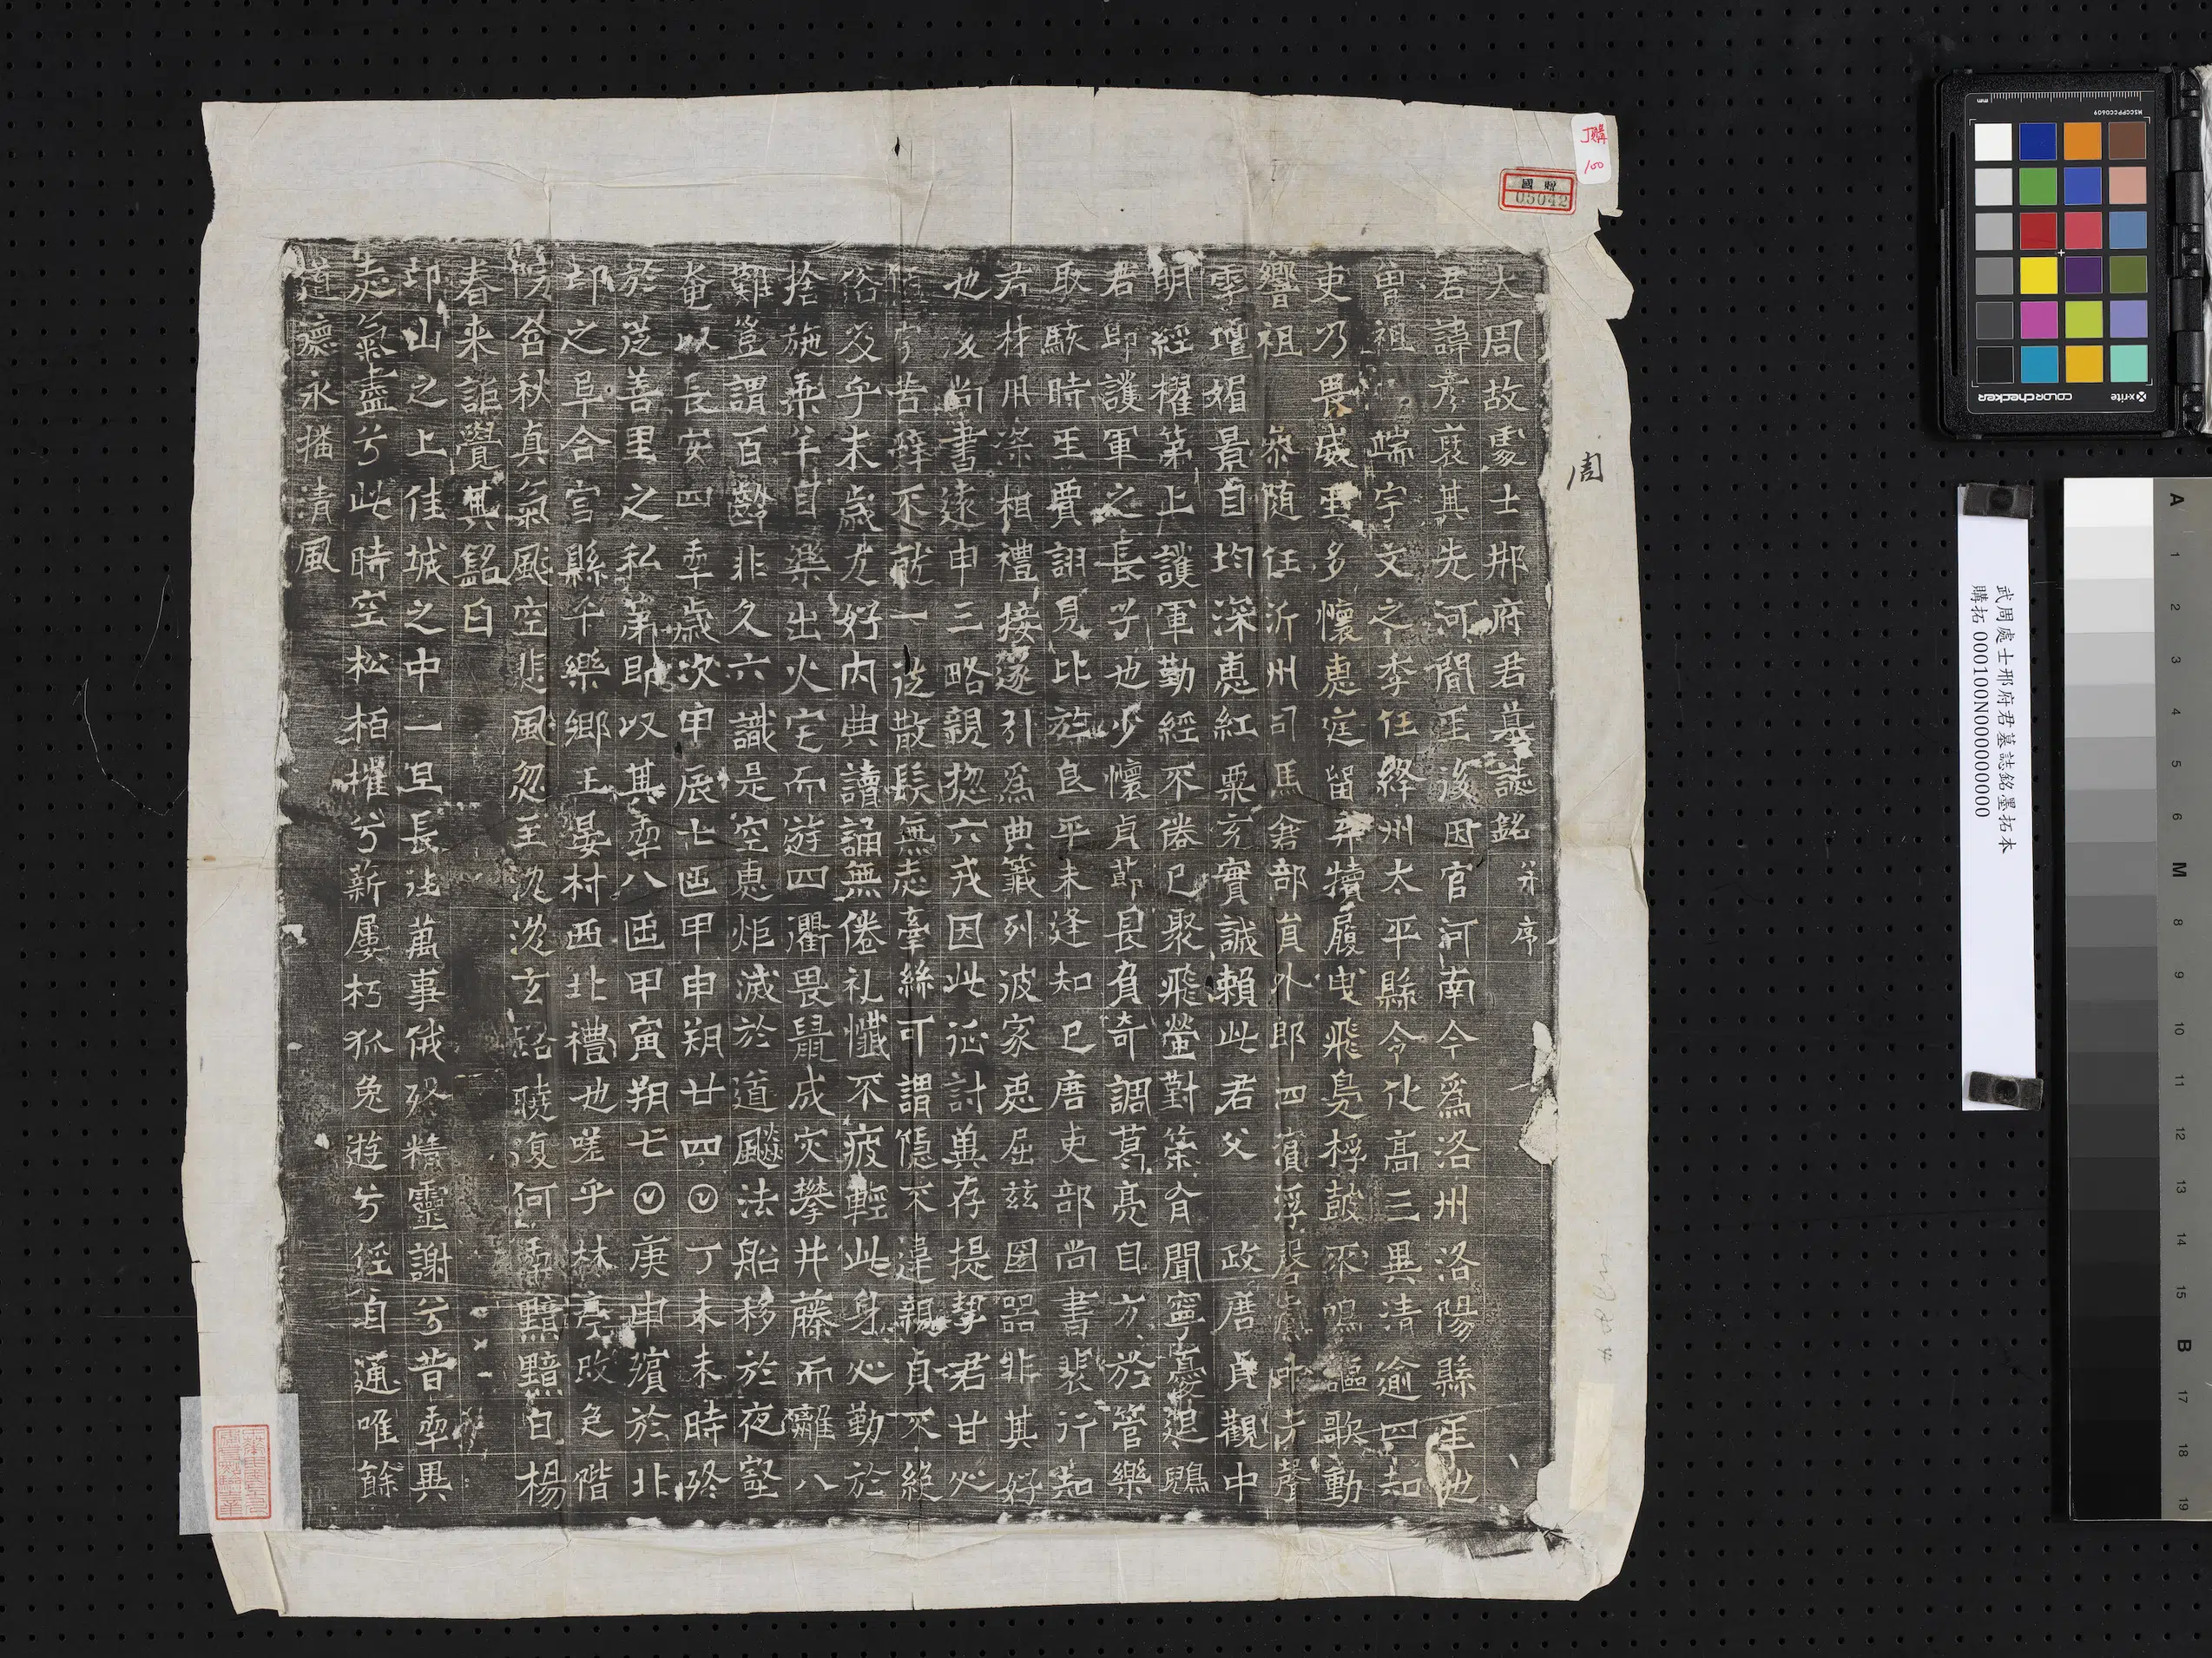 大周故處士邢府君墓誌銘并序
君諱彥裒其先河間王後因官河南今為洛州洛陽縣𤯔也
曾祖端字文之季任絳州太平縣令化高三異清逾四知
吏乃畏威𤯔多懷惠庭留弃犢履曳飛鳧桴鼓不鳴謳歌動
響祖恭隨任沂州司馬倉部員外郎四濱浮磬
季壇娟景自均深惠紅粟充實誠賴此君父政唐貞觀中
明經擢第上護軍勤經不倦已聚飛螢對策有聞寧憂退鶂
君即護軍之長子也少懷貞節長負奇調葛亮自方於管樂
取駭時王賈詡見比於良平未逢知己唐吏部尚書裴行知
君材用深相禮接遂引為典籤列波家𤯔屈茲國器非其好
也後尚書遠申三略親惣六戎因此征討冀存提挈君甘心
苦辭不就一從散髮無志牽絲可謂隱不違親貞不絕
俗及乎末歲尤好內典讀誦無倦礼懺不疲輕此身心勤於
捨施乘羊自樂出火宅而遊四衢畏鼠成灾攀井藤而離八
難豈謂百齡非久六識是空惠炬滅於道飈法船移於夜壑
奄以長安四𠡦歲次甲辰七𠥱甲申朔廿四〇丁未未時終
於從善里之私第即以其𠡦八𠥱甲寅朔七〇庚申殯於北
邙之阜合宮縣千樂鄉王晏村西北禮也嗟乎林亭改色階
院含秋真氣飈空悲風忽至沈沈玄曉復何黯黯白楊
春来詎覺其銘曰
邙山之上佳城之中一旦長往萬事俄終精靈謝兮昔𠡦異
炁氣盡兮此時空松栢摧兮新屢朽狐兔遊兮徑自通唯餘
道德永播清風
周
國贈
05042
丁購
100
武周處士邢府君墓誌銘墨拓本
購拓 000100N000000000
colorchecker
x-rite
MSCCPPCC0609
mm
A 1 2 3 4 5 6 M 8 9 10 11 12 13 14 15 B 17 18 19